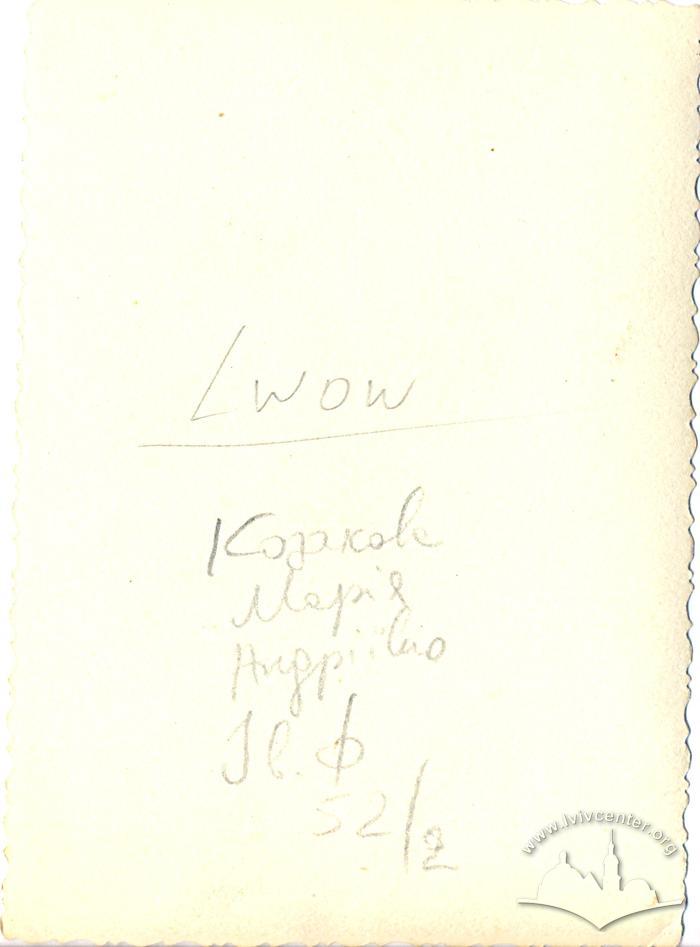 Lwow
Козакова
Марія
Андріївна
Ів. Ф
52/2
www.lvivcenter.org